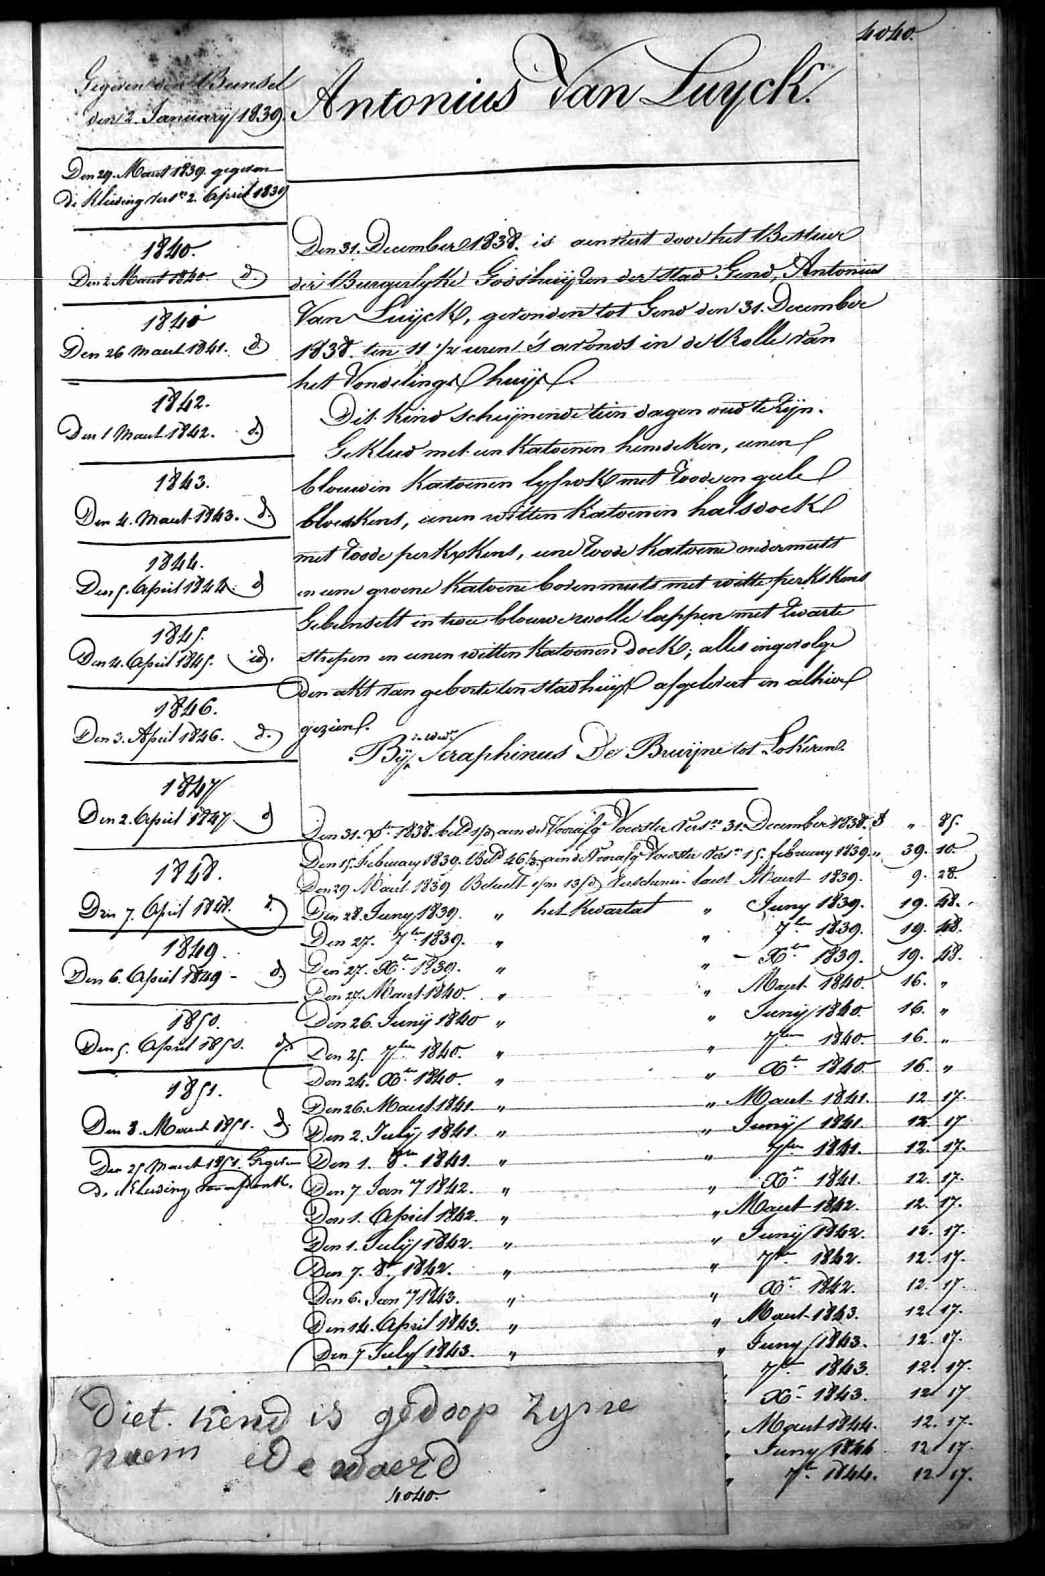 4040.
Antonius Van Luyck.
Gegeven den Bunsel
den 2. January 1839.
Den 29. Maert 1839. gegeven
de Kleeding vers.en 2. April 1839
1840.
Den 2 Maert 1840. d.
1840
Den 26 maert 1841. d.
1842.
Den 1 Maert 1842. d.
1843.
Den 4. Maert 1843. d.
1844.
Den 5. April 1844. d
1845.
Den 4. April 1845. id.
1846.
Den 3. April 1846. d.
1847
Den 2. April 1847 d
1848.
Den 7. April 1848. d.
1849.
Den 6. April 1849 - d.
1850.
Den 5. April 1850. d.
1851.
Den 3. Maert 1851. d.
Den 25 Maert 1851. Gegeven
de Kleeding
Den 31. December 1838. is aenveert door het Bestuer
der Burgerlyke Godshuyzen der stad Gend, Antonius
Van Luyck, gevonden tot Gend den 31. December
1838. ten 11 1/2 uren 's avonds in de Rolle van
het Vondelings huys.
Dit kind scheynende tien dagen oud te zyn.
Gekleed met een Katoenen hemdeken, eenen
blouwen Katoenen lyfrok met roode en geele
bloemkens, eenen witten Katoenen halsdoek
met roode perkxkens, eene roode Katoene ondermuts
en eene groene Katoene bovenmuts met witte perkskens
Gebunselt in twee blouwe wolle lappen met zwarte
strepen en eenen witten Katoenen doek; alles ingevolge
den akt van geboorte ten stadhuyse afgelevert en alhier
gezien.
By Seraphinus De Bruyne tot Lokeren.
Den 31. Xbr 1838. beld 1/3 aen de Voorafge Voedster Vers.en 31. December 1838. " 85.
Den 15. February 1839. Beld 46/3. aen de Voorafge Voedster Vers.en 15. February 1839. " 39. 10.
Den 29 Maert 1839 Betaelt 13/3 Verschenen laest Maert 1839. 9. 28.
Den 28. Juny 1839. " het Kwartael " Juny 1839. 19. 48.
Den 27. 7ber 1839. " " 7ber 1839. 19. 48.
Den 27. Xber 1839. " " Xber 1839. 19. 48.
Den 27. Maert 1840. " " Maert 1840 16. "
Den 26. Juny 1840 " " Juny 1840. 16. "
Den 25. 7ber 1840. " " 7ber 1840 16. "
Den 24. Xbr 1840. " " Xbr 1840 16. "
Den 26. Maert 1841. " " Maert 1841. 12 17.
Den 2. July 1841. " " Juny 1841. 12. 17
Den 1. 8ber 1841. " " 7ber 1841. 12. 17.
Den 7 Jany 1842. " " Xr 1841. 12. 17.
Den 1. April 1842. " " Maert 1842. 12. 17.
Den 1. July 1842. " " Juny 1842. 12. 17.
Den 7. 8br 1842. " " 7br 1842. 12. 17.
Den 6. Jany 1843. " " Xr 1842. 12. 17.
Den 14. April 1843. " " Maert 1843. 12. 17.
Den 7 July 1843. " " Juny 1843. 12. 17.
7br 1843. 12. 17.
Xr 1843. 12 17
Maert 1844. 12. 17.
Juny 1844 12 17.
7br 1844. 12 17.
Diet kend is gedoop zyne
naem edewaerd
4040.